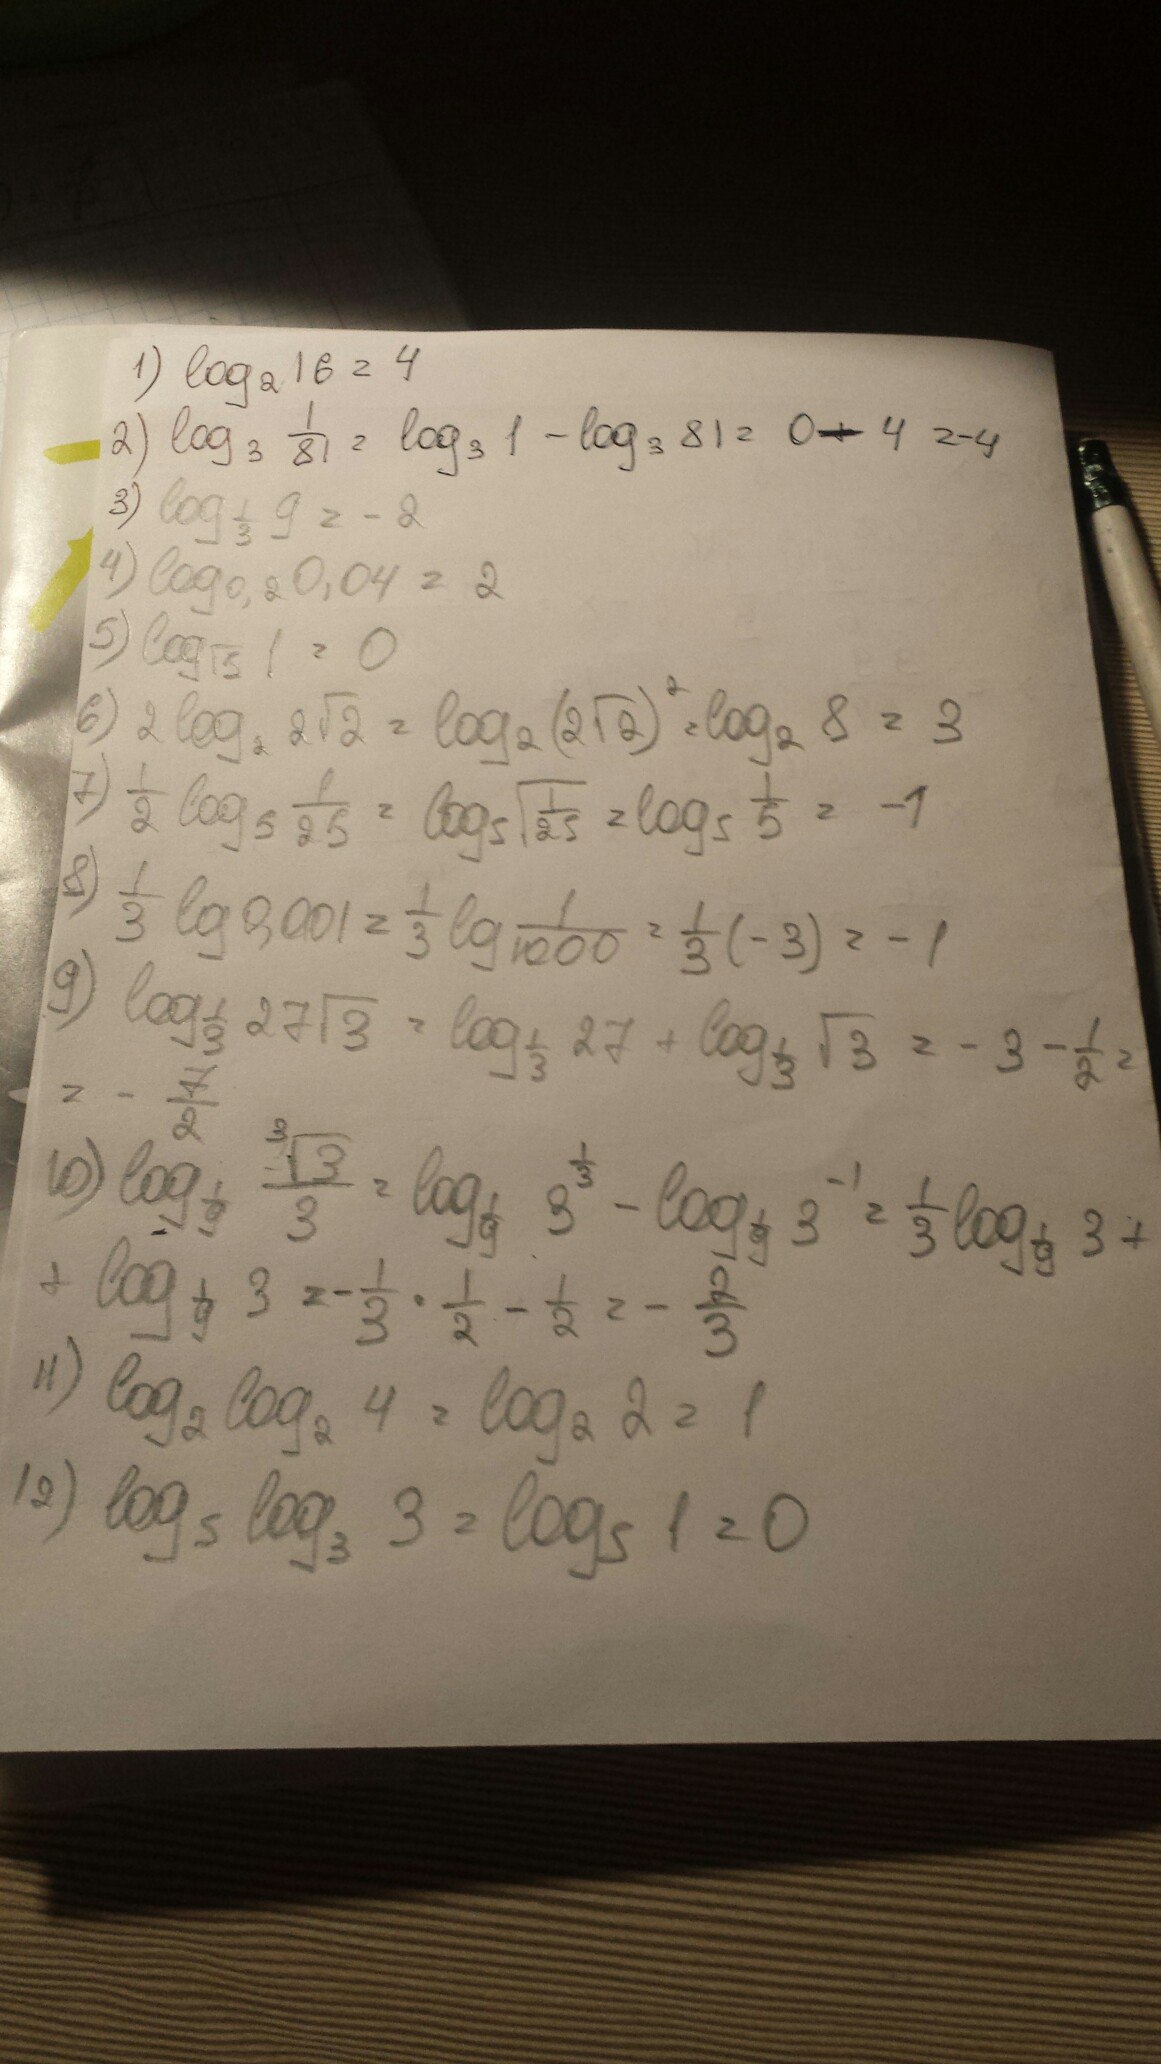 1) log₂ 16 = 4
2) log₃ 1/81 = log₃ 1 - log₃ 81 = 0 - 4 = -4
3) log_{1/3} 9 = -2
4) log_{0,2} 0,04 = 2
5) log_{√5} 1 = 0
6) 2 log₂ 2√2 = log₂ (2√2)² = log₂ 8 = 3
7) 1/2 log₅ 1/25 = log₅ √(1/25) = log₅ 1/5 = -1
8) 1/3 lg 0,001 = 1/3 lg 1/1000 = 1/3 (-3) = -1
9) log_{1/3} 27√3 = log_{1/3} 27 + log_{1/3} √3 = -3 - 1/2 =
= - 7/2
10) log_{1/9} ³√3/3 = log_{1/9} 3^{1/3} - log_{1/9} 3^{-1} = 1/3 log_{1/9} 3 +
+ log_{1/9} 3 = - 1/3 · 1/2 - 1/2 = - 2/3
11) log₂ log₂ 4 = log₂ 2 = 1
12) log₅ log₃ 3 = log₅ 1 = 0